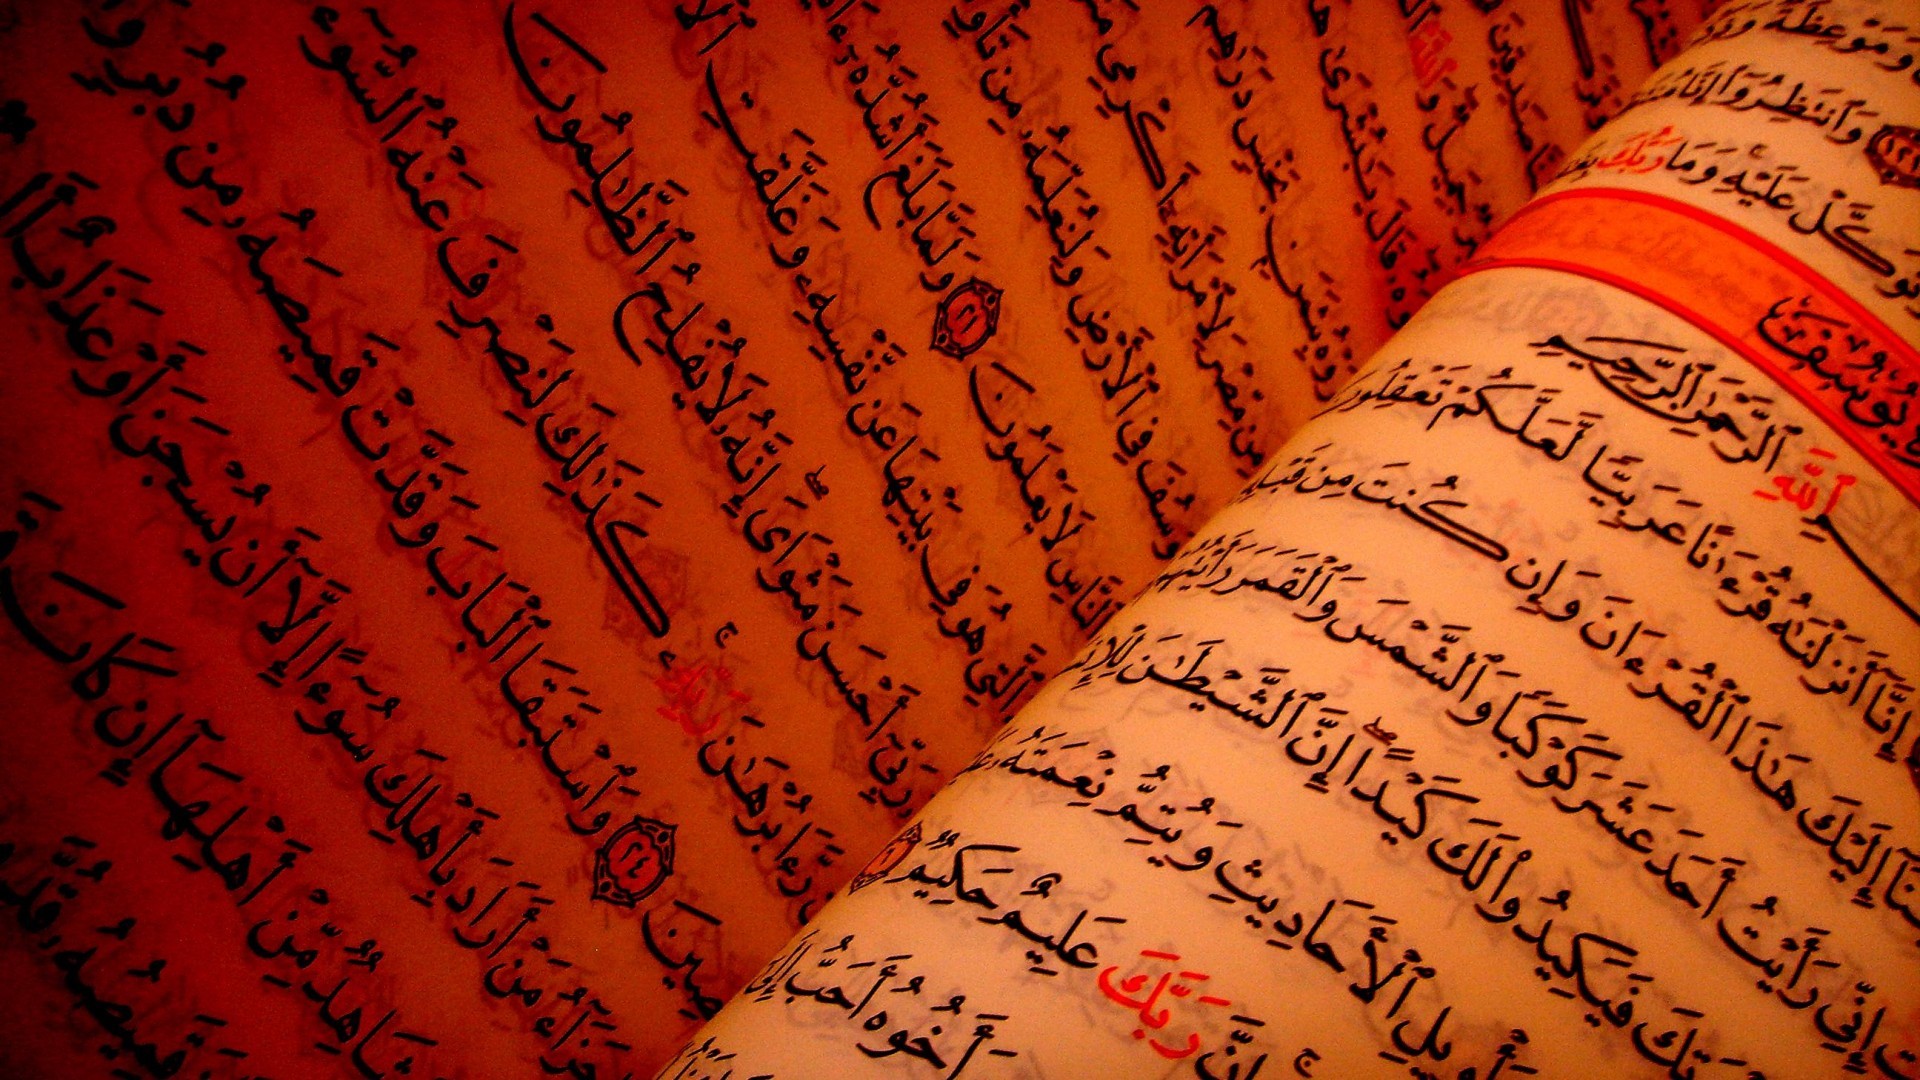 وَمَوْعِظَةٌ
وَٱنتَظِرُوٓا۟ إِنَّا
وَتَوَكَّلْ عَلَيْهِ وَمَا رَبُّكَ
يُوسُفَ
ٱللَّهِ ٱلرَّحْمَٰنِ ٱلرَّحِيمِ
إِنَّآ أَنزَلْنَٰهُ قُرْءَٰنًا عَرَبِيًّا لَّعَلَّكُمْ تَعْقِلُونَ
إِلَيْكَ هَٰذَا ٱلْقُرْءَانَ وَإِن كُنتَ مِن
إِنِّى رَأَيْتُ أَحَدَ عَشَرَ كَوْكَبًا وَٱلشَّمْسَ وَٱلْقَمَرَ رَأَيْتُهُمْ
فَيَكِيدُوا۟ لَكَ كَيْدًا إِنَّ ٱلشَّيْطَٰنَ
ٱلْأَحَادِيثِ وَيُتِمُّ نِعْمَتَهُۥ
إِنَّ رَبَّكَ عَلِيمٌ حَكِيمٌ
أَخُوهُ أَحَبُّ
قَالَ يَٰبُشْرَىٰ
بِثَمَنٍۭ بَخْسٍ دَرَٰهِمَ
مِن مِّصْرَ لِٱمْرَأَتِهِۦٓ أَكْرِمِى
فِى ٱلْأَرْضِ وَلِنُعَلِّمَهُۥ مِن
ٱلنَّاسِ لَا يَعْلَمُونَ ٢١ وَلَمَّا بَلَغَ أَشُدَّهُۥٓ
ٱلَّتِى هُوَ فِى بَيْتِهَا عَن نَّفْسِهِۦ وَغَلَّقَتِ
رَبِّىٓ أَحْسَنَ مَثْوَاىَ إِنَّهُۥ لَا يُفْلِحُ ٱلظَّٰلِمُونَ
رَّءَا بُرْهَٰنَ رَبِّهِۦ كَذَٰلِكَ لِنَصْرِفَ عَنْهُ ٱلسُّوٓءَ
٢٤ وَٱسْتَبَقَا ٱلْبَابَ وَقَدَّتْ قَمِيصَهُۥ مِن دُبُرٍ
جَزَآءُ مَنْ أَرَادَ بِأَهْلِكَ سُوٓءًا إِلَّآ أَن يُسْجَنَ أَوْ عَذَابٌ
شَاهِدٌ مِّنْ أَهْلِهَآ إِن كَانَ
قَمِيصُهُۥ